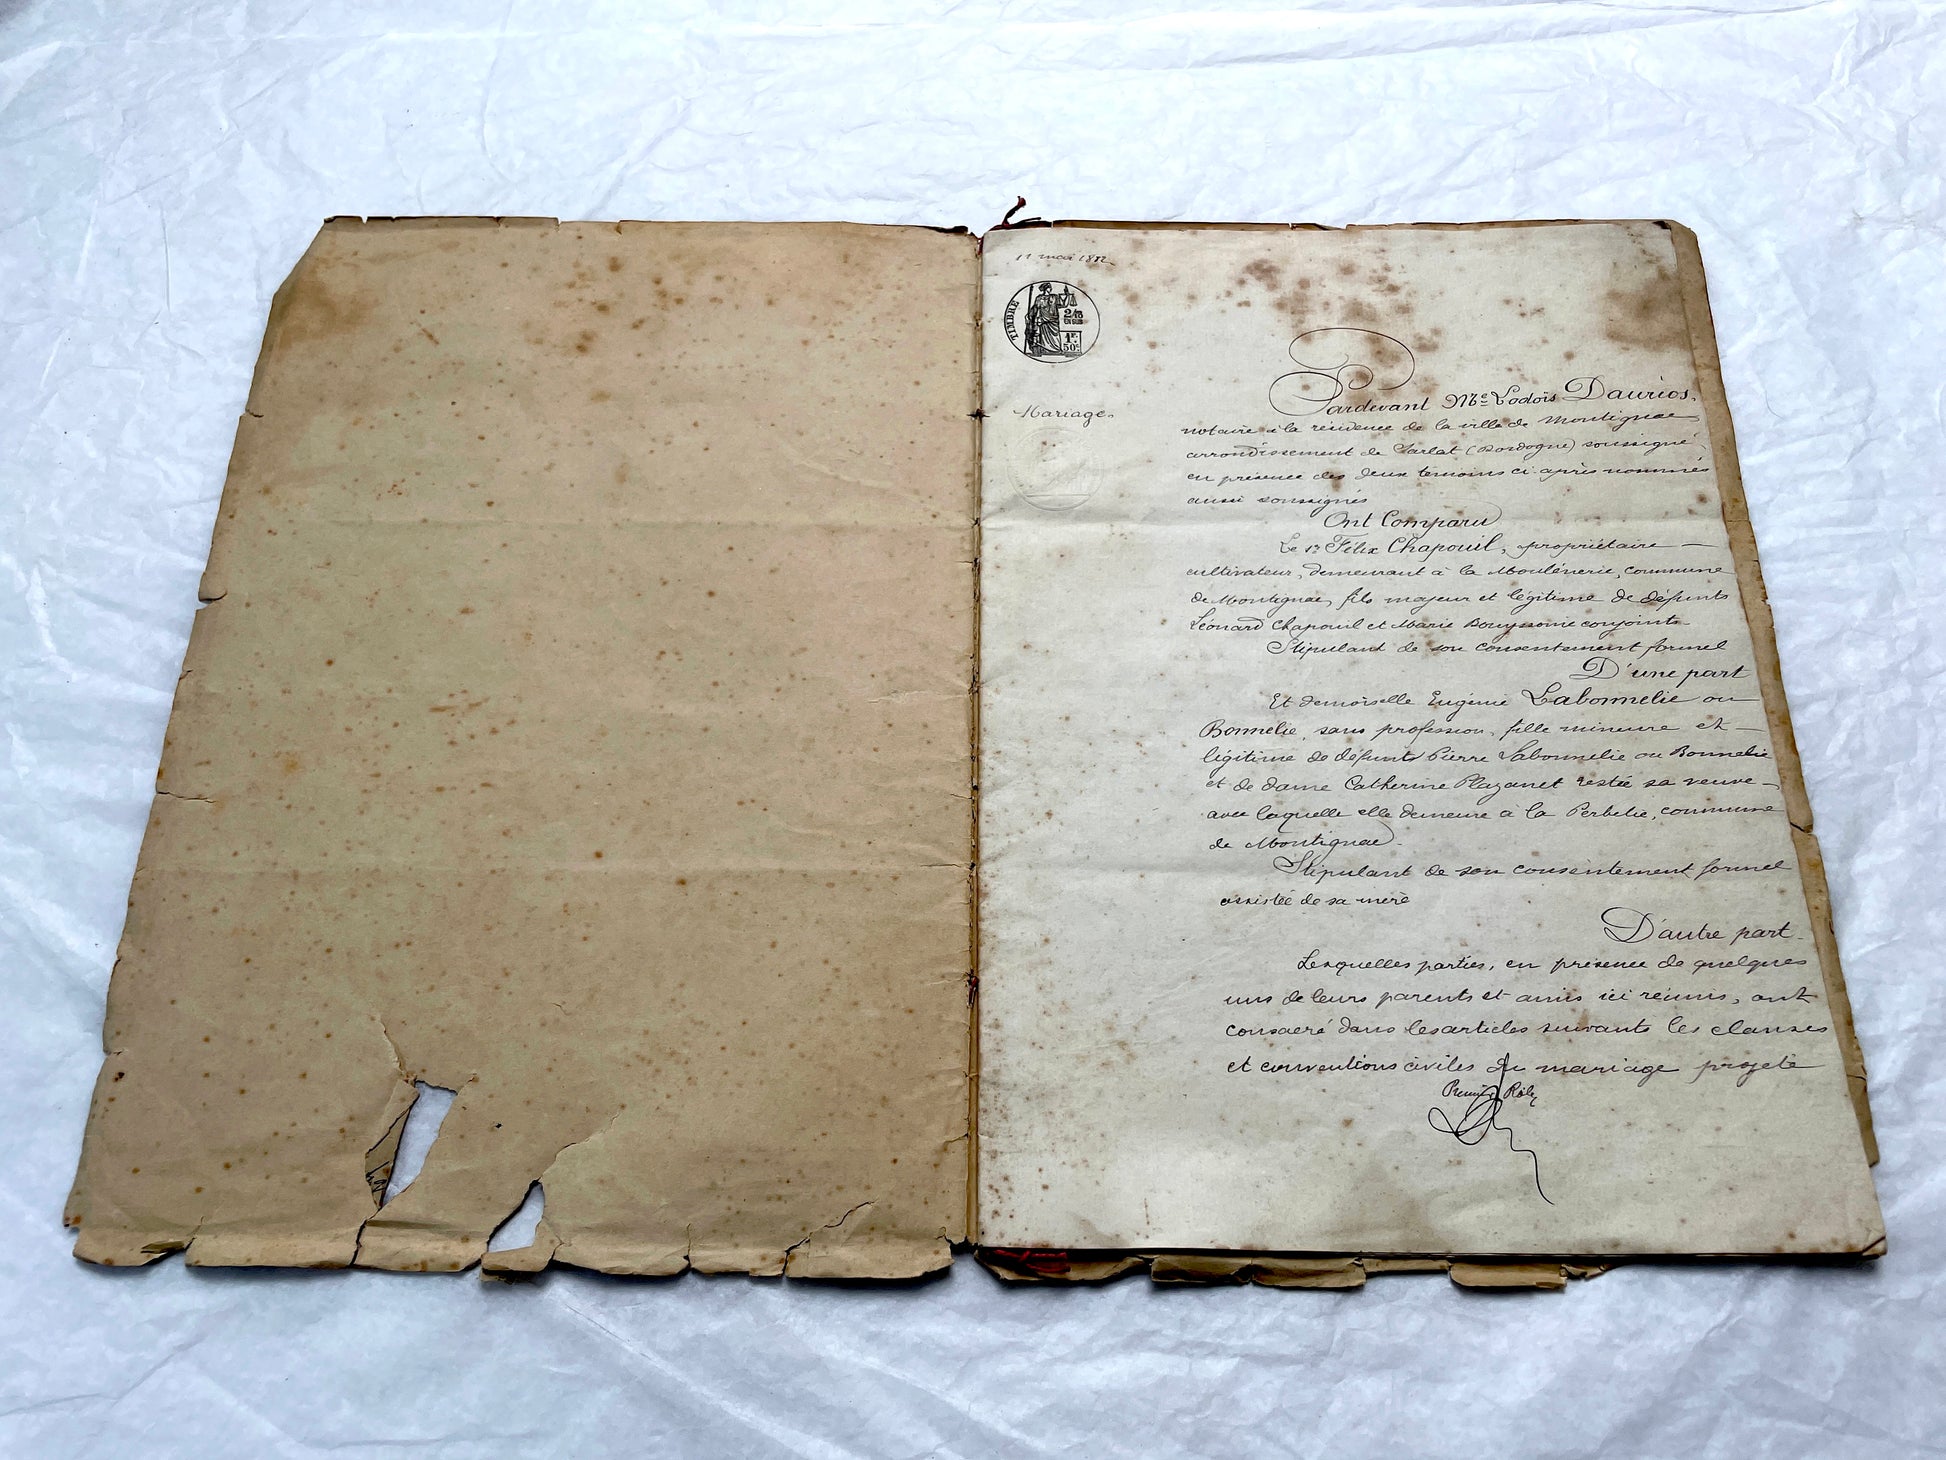 11 mai 1882
TIMBRE
2/10
EN SUS
1F.
50c.
Mariage.
Pardevant Me Lodoïs Daurios,
notaire à la résidence de la ville de Montignac
arrondissement de Sarlat (Dordogne) soussigné,
en présence des deux témoins ci-après nommés
aussi soussignés
Ont Comparu
Le sr Félix Chapouil, propriétaire —
cultivateur, demeurant à la Moulénerie, commune
de Montignac, fils majeur et légitime de défunts
Léonard Chapouil et Marie Bouyssonie conjoints.
Stipulant de son consentement formel
D'une part
Et demoiselle Eugénie Labonnelie ou
Bonnelie, sans profession, fille mineure et —
légitime de défunt Pierre Labonnelie ou Bonnelie
et de dame Catherine Plazanet restée sa veuve —
avec laquelle elle demeure à la Perbelie, commune
de Montignac.
Stipulant de son consentement formel
assistée de sa mère
D'autre part.
Lesquelles parties, en présence de quelques
uns de leurs parents et amis ici réunis, ont
consacré dans les articles suivants les clauses
et conventions civiles du mariage projeté
Premier Rôle